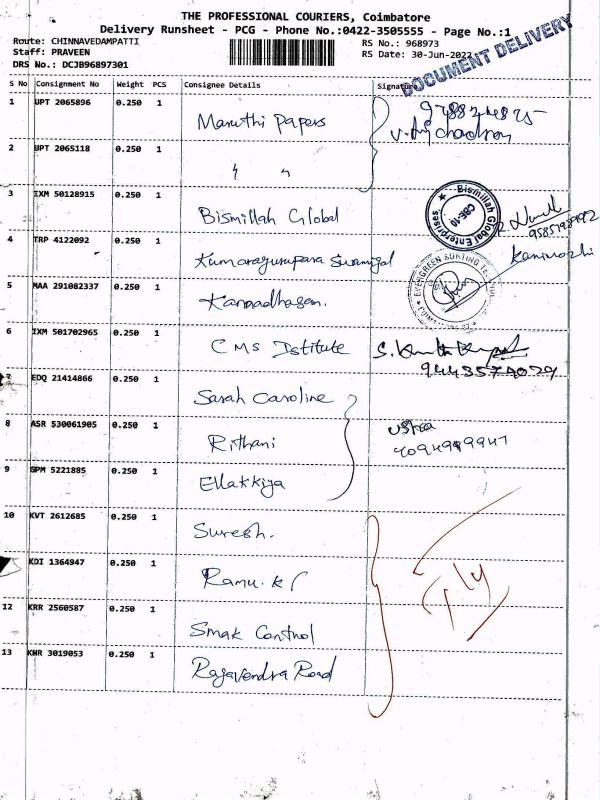 THE PROFESSIONAL COURIERS, Coimbatore
Delivery Runsheet - PCG - Phone No.:0422-3505555 - Page No.:1
Route: CHINNAVEDAMPATTI
RS No.: 968973
Staff: PRAVEEN
RS Date: 30-Jun-2022
DRS No.: DCJB96897301
DOCUMENT DELIVERY
S No Consignment No Weight PCS Consignee Details Signature
1 UPT 2065896 0.250 1 Maruthi Papers
2 UPT 2065118 0.250 1 " "
3 IXM 50128915 0.250 1 Bismillah Global
Bismillah Global Enterprises
CBE-10
4 TRP 4122092 0.250 1 Kumaragurupara Swamigal
Kanimozhi
5 MAA 291082337 0.250 1 Kannadhasan.
6 IXM 501702965 0.250 1 CMS Istitute
7 EDQ 21414866 0.250 1 Sarah Caroline
8 ASR 530061905 0.250 1 Rithani
9 SPM 5221885 0.250 1 Ellakkiya
10 KVT 2612685 0.250 1 Suresh.
KDI 1364947 0.250 1 Ramu. K
12 KRR 2560587 0.250 1 Smak Control
13 KNR 3019053 0.250 1 Ragavendra Road